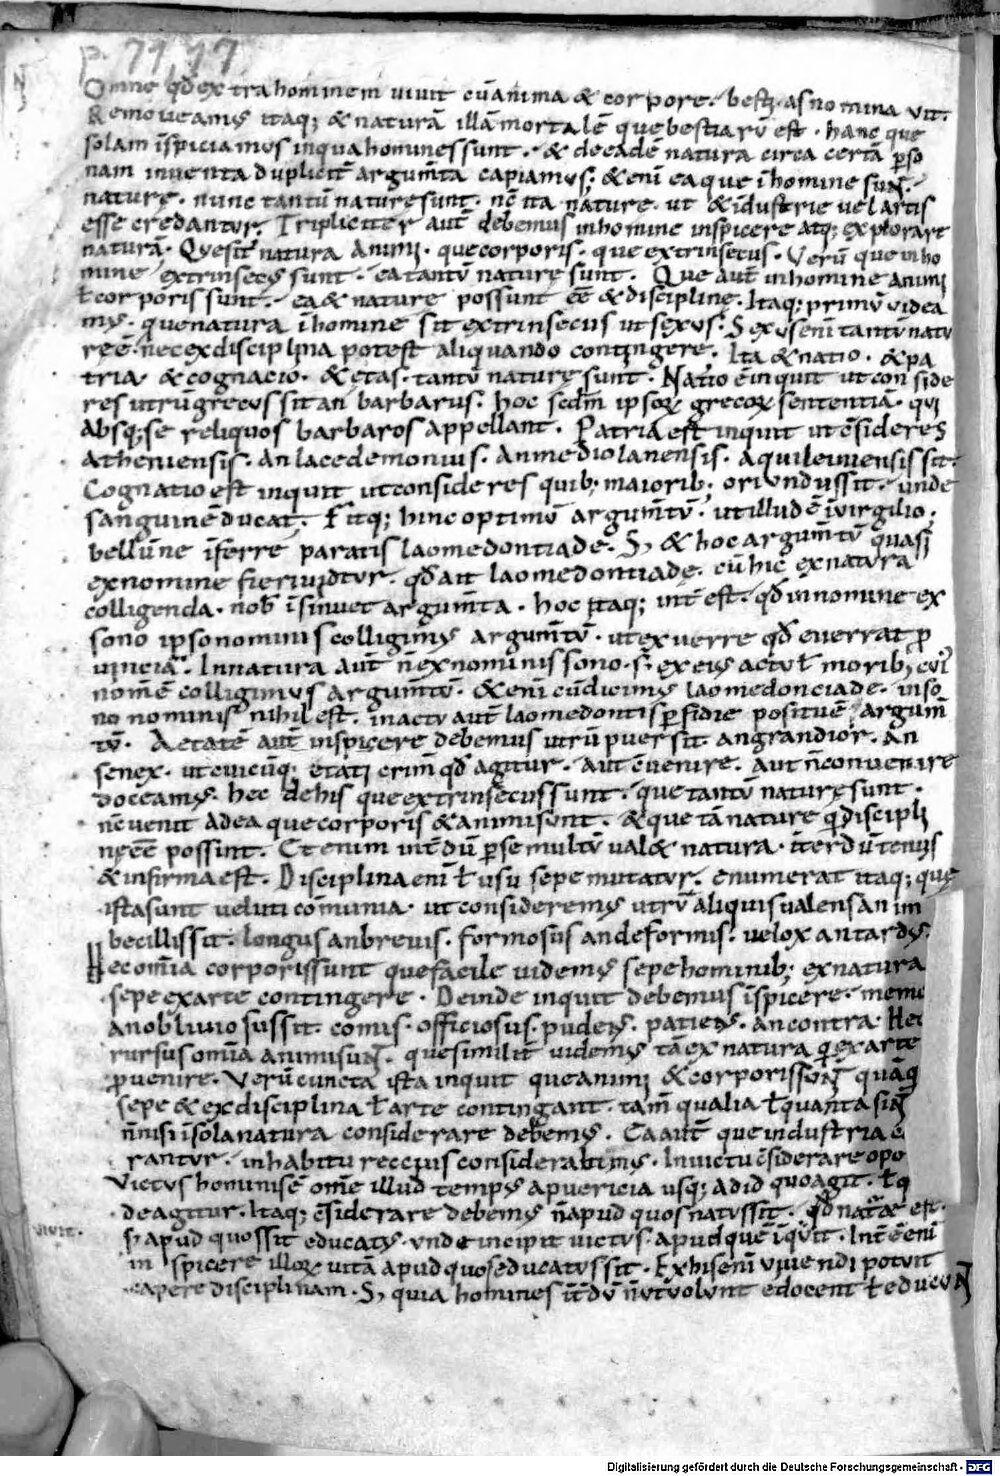 p. 71, 17
Omne qđ extra hominem vivit cū anima & corpore. besti as nomina vit.
Removeamꝰ itaq; & naturā illā mortalē que bestiarū est. hanc que
solam īspiciamus in qua homines sunt. & de eadē natura circa certā pſo
nam inventa dupliciť argumta capiamus. & enī ea que ī homine sunt
nature. nunc tantū nature sunt. nc̄ ita nature. ut & īdustrie vel artis
esse credantur. Tripliciter aut̄ debemus in homine inspicere atq; explorare
naturā. Que sit natura animi. que corporis. que extrinsecus. Verū que in ho
mine extrinsecꝰ sunt. ea tantū nature sunt. Que aut̄ in homine animi
ł corporis sunt. ea & nature possunt eē & discipline. Itaq; primū videa
mꝰ. que natura ī homine sit extrinsecus ut sexus. Sexus enī tantū natu
re ē. nec ex disciplina potest aliquando contingere. Ita & natio. & pa
tria. & cognacio. & etas. tantū nature sunt. Natio ē inquit ut conside
res utrū grecus sit an barbarus. hoc scđm ipsoꝝ grecoꝝ sententia. qui
absq; se reliquos barbaros appellant. Patria est inquit ut c̄sideres
atheniensis. an lacedemonius. an mediolanensis. aquileiuiensis sit.
Cognatio est inquit ut consideres quib; maiorib; oriundus sit. unde
sanguinē ducat. Fitq; hinc optimū argumtū. ut illud ē ī virgilio.
bellū ne īferre paratis laomedontiade. S; & hoc argumtū quasi
ex nomine fieri vidtur. qđ ait laomedontiade. cū hic ex natura
colligenda. nob īsinuet argumta. hoc itaq; inť est. qđ in nomine ex
sono ipso nominis colligimꝰ argumtū. ut ex verre qđ everrat ꝓ
vinciā. In natura aut̄ ñ ex nominis sono. s; ex eiꝰ actu ł morib; cuiꝰ
nom̄e colligimus argumtū. & enī cū dicimꝰ laomedonciade. in so
no nominis nihil est. in actu aut̄ laomedontis pfidie positū ē argum
tū. Aetatē aut̄ inspicere debemus utrū puer sit. an grandior. an
senex. ut cuicūq; etati crim̄ qđ agitur. aut c̄venire. aut ñ convenire
doceamꝰ. hec de his que extrinsecus sunt. que tantū nature sunt.
nc̄ venit ad ea que corporis & animi sunt. & que tā nature q̄ discipli
ne eē possint. Et enim inťdū pse multū val& natura. īterdū tenuis
& infirma est. Disciplina enī ł usu sepe mutatur. enumerat itaq; que
ista sunt veluti communia. ut consideremꝰ utrū aliquis valens an im
becillis sit. longus an brevis. formosus an deformis. velox an tardꝰ.
hec om̄ia corporis sunt que facile videmꝰ sepe hominib; ex natura
sepe ex arte contingere. Deinde inquit debemus īspicere. memor
an obliviosus sit. comis. officiosus. pudens. patiens. an contra. Hec
rursus om̄ia animi sunt. que similiť videmꝰ tā ex natura q̄ ex arte
ꝓvenire. Verū cuncta ista inquit que animi & corporis sunt quāq̄
sepe & ex disciplina ł arte contingant. tam̄ qualia ł quanta sint
ñ nisi ī sola natura considerare debemꝰ. Ea aut̄ que industria
rantur. in habitu reccius considerabimꝰ. In victu c̄siderare opo
Victus hominis ē om̄e illud tempꝰ a puericia usq; ad id quo agit. ł q
de agitur. Itaq; c̄siderare debemꝰ ñ apud quos natus sit. qđ naturae est.
vivit. s; apud quos sit educatꝰ. unde incipit victus. apud quē īqūit. Inť ē enī
inspicere illoꝝ vitā apud quos educatus sit. Ex his enī vivendi potuit
capere disciplinam. S; quia homines īťdū ñ ut volunt edocent ł educunt
Digitalisierung gefördert durch die Deutsche Forschungsgemeinschaft - DFG